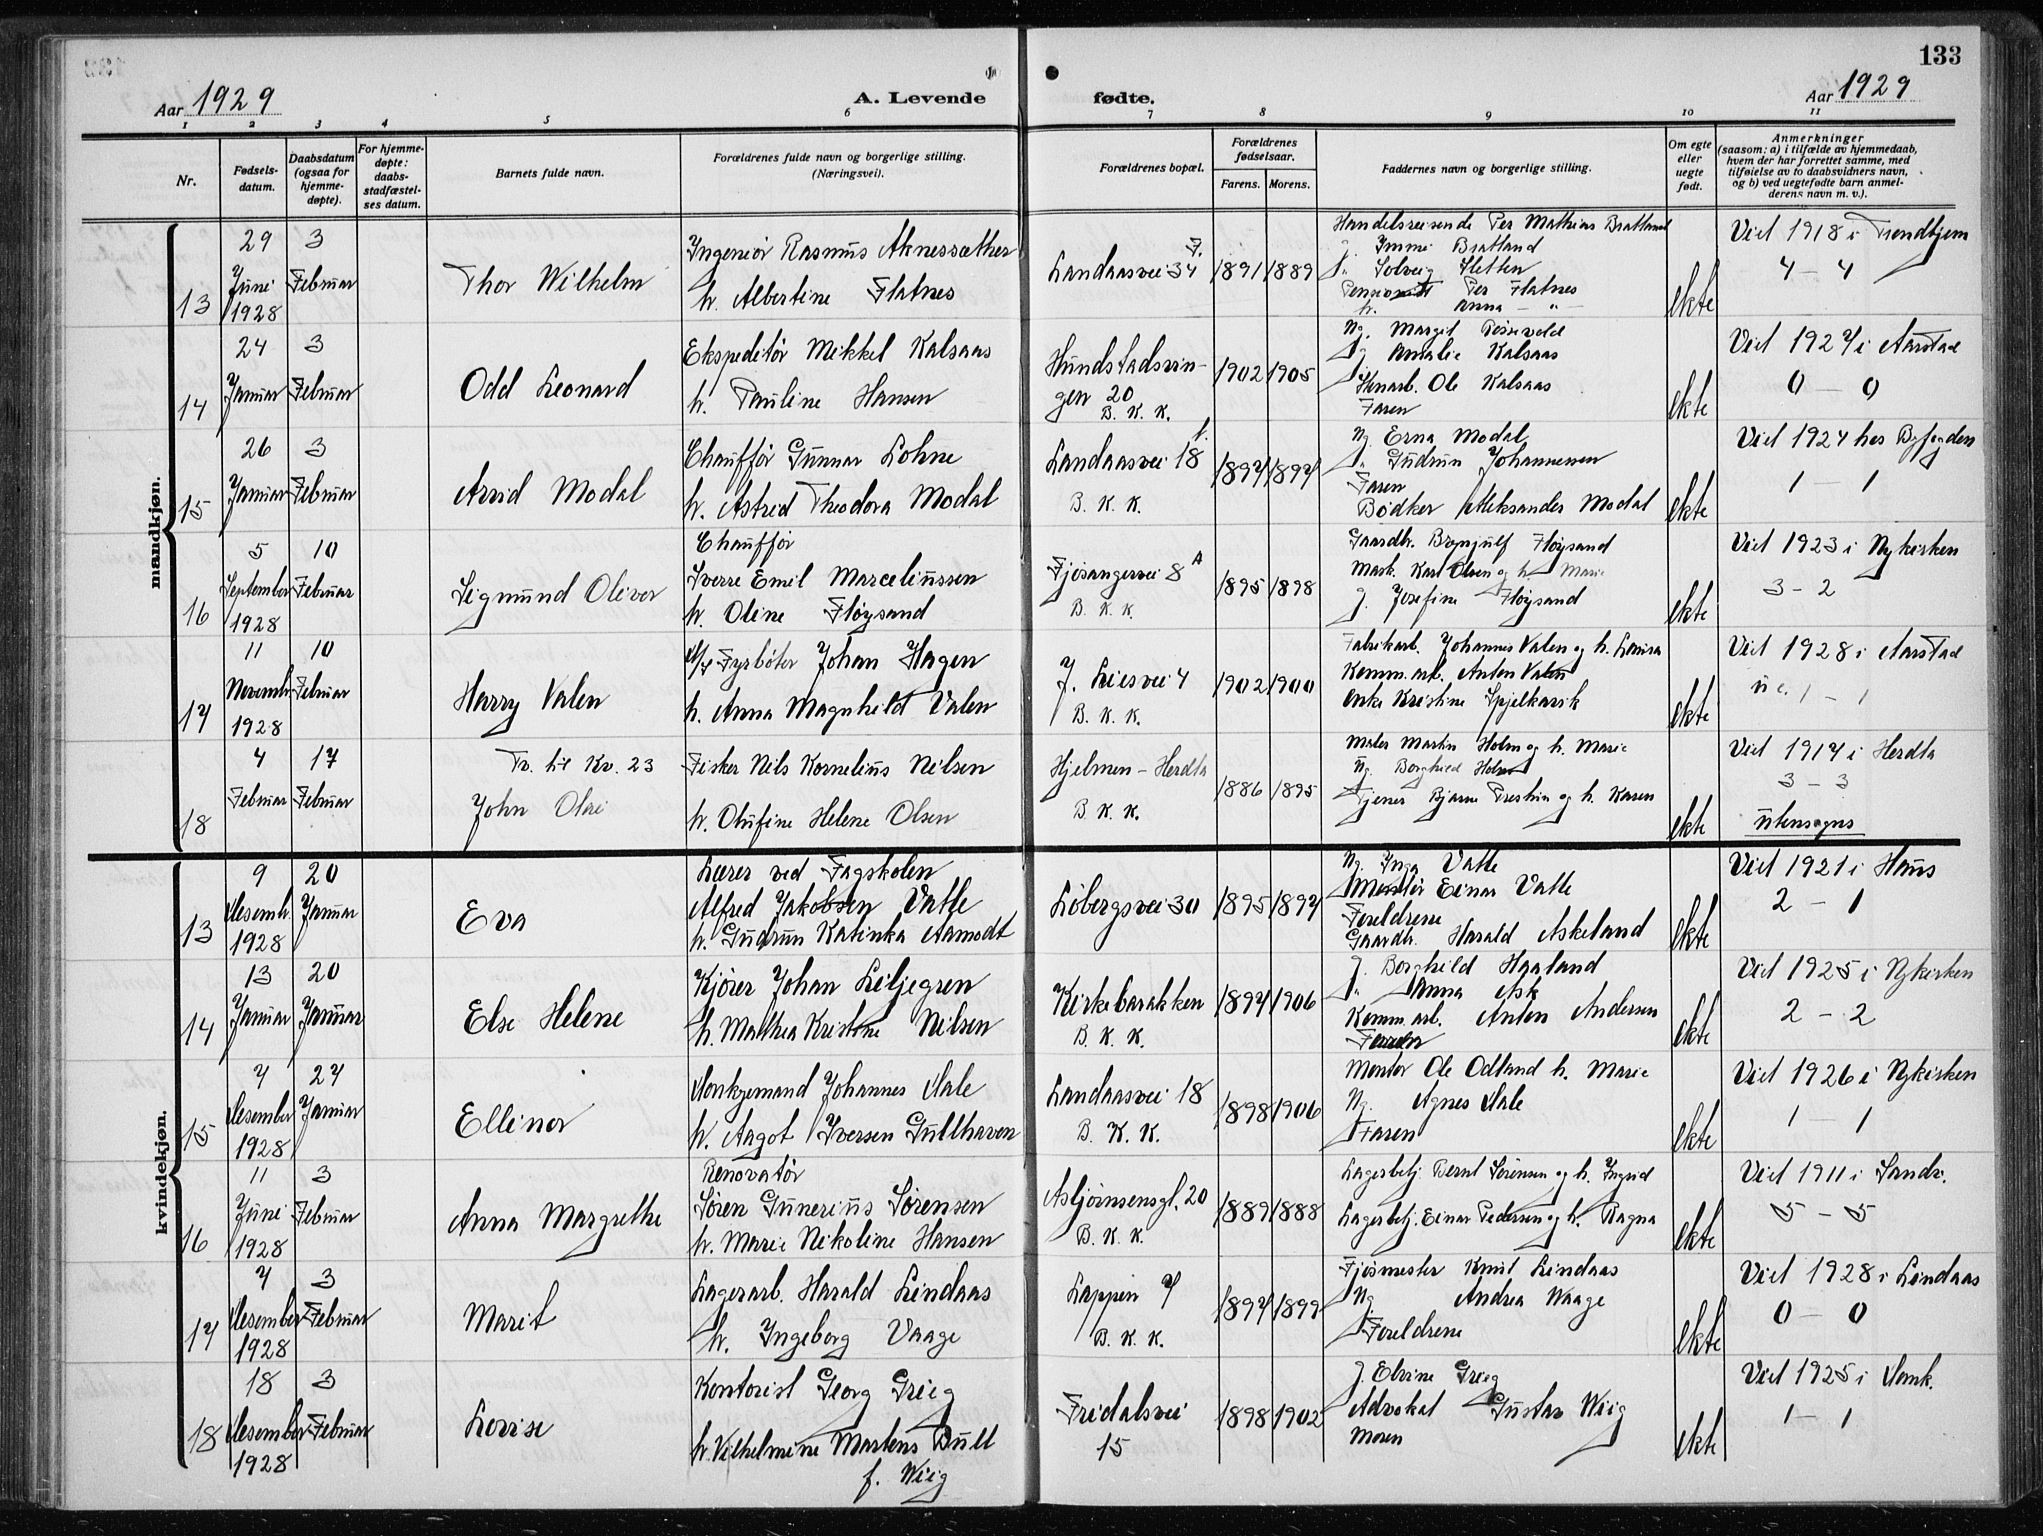 133
Aar 1929
A. Levende fødte.
Aar 1929
1 2 3 4 5 6 7 8 9 10 11
Nr.
Fødsels-
datum.
Daabsdatum
(ogsaa for
hjemme-
døpte).
For hjemme-
døpte:
daabs-
stadfæstel-
ses datum.
Barnets fulde navn.
Forældrenes fulde navn og borgerlige stilling.
(Næringsvei).
Forældrenes bopæl.
Forældrenes
fødselsaar.
Farens. Morens.
Faddernes navn og borgerlige stilling.
Om egte
eller
uegte
født.
Anmerkninger
(saasom: a) i tilfælde av hjemmedaab,
hvem der har forrettet samme, med
tilføielse av to daabsvidners navn,
og b) ved uegtefødte barn anmel-
derens navn m. v.).
mandkjøn.
13
29
Juni
1928
3
Februar
Thor Wilhelm
Ingeniør Rasmus Aknessæther
h. Albertine Flatnes
Landaasvei 34
1891 1889
Handelsreisende Per Mathias Brattland
Brattland
j. Solveig Sletten
Per Flatnes
h. Anna - " -
ekte
Viet 1918 i Trondhjem
4 - 4
14
24
Januar
3
Februar
Odd Leonard
Ekspeditør Mikkel Kalsaas
h. Pauline Hansen
Hundstadsvin-
gen 20
B. K. K.
1902 1905
Ug. Margit
j. Amalie Kalsaas
Ole Kalsaas
Faren
ekte
Viet 1927 i Aarstad
0 - 0
15
26
Januar
3
Februar
Arvid Modal
Chauffør Gunnar Lohne
h. Astrid Theodora Modal
Landaasvei 18
B. K. K.
1897 1897
Ug. Erna Modal
j. Gudrun Johannessen
Faren
Bødker Aleksander Modal
ekte
Viet 1924 hos Byfogden
1 - 1
16
5
September
1928
10
Februar
Sigmund Oliver
Chauffør
Sverre Emil Marceliussen
h. Oline Fløysand
Fjøsangervei 8 A
B. K. K.
1895 1898
Gaardbr. Brynjulf Fløysand
Mask. Karl Olsen og h. Marie
j. Josefine Fløysand
ekte
Viet 1923 i Nykirken
3 - 2
17
11
Novemb.
1928
10
Februar
Harry Valen
Fyrbøter Johan Hagen
h. Anna Magnhild Valen
J. Liesvei 4
B. K. K.
1902 1900
Fabrikarb. Johannes Valen og h. Lovisa
Komm. arb. Anton Valen
Enke Kristine Spjelkavik
ekte
Viet 1928 i Aarstad
1 - 1
18
4
Februar
17
Februar
Tv. til Kv. 23
John
Fisker Nils Kornelius Nilsen
h. Olufine Helene Olsen
Hjelmen - Herdla
B. K. K.
1886 1895
Maler Martin Holm og h. Marie
Ug. Borghild Holm
Tjener Bjarne Presthin og h. Karen
ekte
Viet 1917 i Herdla
3 - 3
utensogns
kvindekjøn.
13
9
Desemb.
1928
20
Januar
Eva
Lærer ved Fagskolen
Alfred Jakobsen Vatle
h. Gudrun Katinka Aamodt
Løbergsvei 30
1895 1897
Ug. Inga Vatle
Montør Einar Vatle
Foreldrene
Gaardbr. Harald Askeland
ekte
Viet 1921 i Haus
2 - 1
14
13
Januar
20
Januar
Else Helene
Kjører Johan Liljegren
h. Mathea Kristine Nilsen
Kirkebarakken
B. K. K.
1897 1906
j. Borghild Haaland
j. Anna Ask
Komm. arb. Anton Andersen
ekte
Viet 1925 i Nykirken
2 - 2
15
7
Desember
1928
27
Januar
Ellinor
Konkjemand Johannes Dale
h. Aagot Iversen Gullhaven
Landaasvei 18
B. K. K.
1898 1906
Montør Ole Odland h. Marie
Ug. Agnes Dale
Faren
ekte
Viet 1926 i Nykirken
1 - 1
16
11
Juni
1928
3
Februar
Anna Margrethe
Renovatør
Søren Gunerius Sørensen
h. Marie Nikoline Hansen
Asbjørnsensgt. 20
B. K. K.
1889 1888
Lagerbetj. Bernt Sørensen og h. Ingrid
Lagerbetj. Einar Pedersen og h. Ragna
ekte
Viet 1911 i Sandv.
5 - 5
17
7
Desember
1928
3
Februar
Marit
Lagerarb. Harald Lindaas
h. Ingeborg Vaage
Lappen 7
B. K. K.
1897 1899
Fjøsmester Knut Lindaas
Ug. Andrea Waage
Foreldrene
ekte
Viet 1928 i Lindaas
0 - 0
18
18
Desember
1928
3
Februar
Lovise
Kontorist Georg Grieg
h. Vilhelmine Martens Bull
f. Wiig
Fridalsvei
15
1898 1902
j. Elvine Grieg
Advokat Gustav Wiig
Moren
ekte
Viet 1925 i Domk.
1 - 1